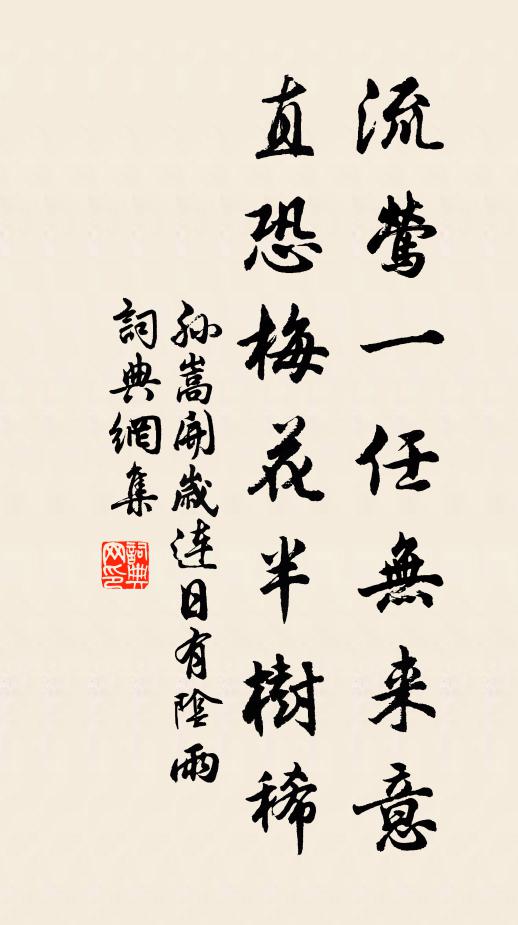 流鶯一任無来意
直恐梅花半樹稀
孙嵩開歲连日有陰雨
詞典網集
詞典网印